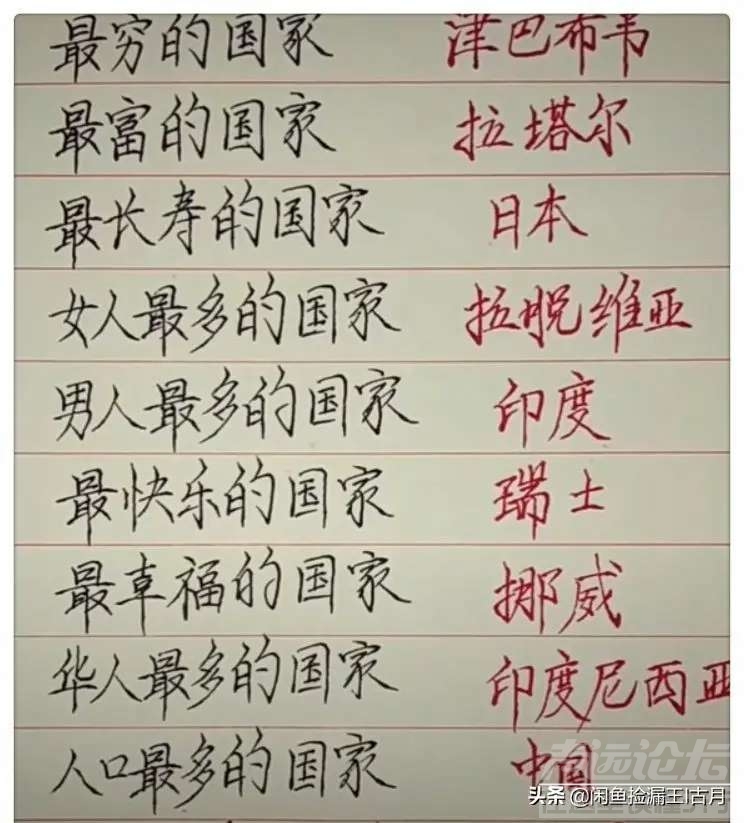 最穷的国家 津巴布韦
最富的国家 拉塔尔
最长寿的国家 日本
女人最多的国家 拉脱维亚
男人最多的国家 印度
最快乐的国家 瑞士
最幸福的国家 挪威
华人最多的国家 印度尼西亚
人口最多的国家 中国
头条 @闲鱼捡漏王|古月